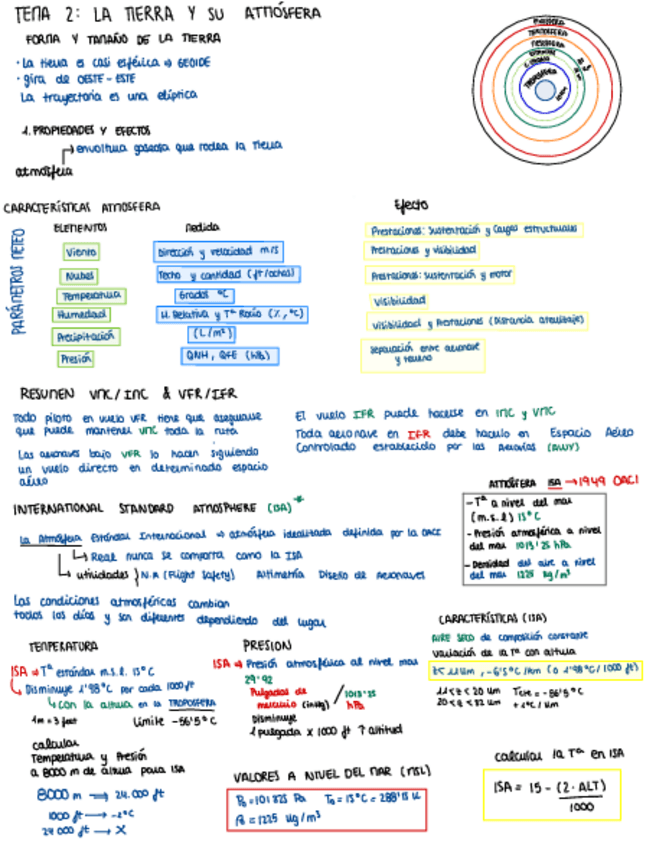 TEMA 2: LA TIERRA Y SU ATMÓSFERA
FORMA Y TAMAÑO DE LA TIERRA
· La tierra es casi esférica → GEOIDE
· gira de OESTE - ESTE
La trayectoria es una elíptica
EXOSFERA
TERMOSFERA
MESOSFERA
TROPOSFERA
1. PROPIEDADES Y EFECTOS
→ envoltura gaseosa que rodea la tierra
atmósfera
CARACTERÍSTICAS ATMOSFERA
PARÁMETROS METEO
ELEMENTOS Medida Efecto
Viento Dirección y velocidad m/s Prestaciones: Sustentación y Cargas estructurales
Nubes Techo y cantidad (ft/octas) Prestaciones y visibilidad
Temperatura Grados ºC Prestaciones: sustentación y motor
Humedad H. Relativa y Tª Rocío (%, ºC) Visibilidad
Precipitación (L/m²) Visibilidad y Prestaciones (Distancia aterrizaje)
Presión QNH, QFE (Mb) Separación entre aeronave
y terreno
RESUMEN VMC/IMC & VFR/IFR
Todo piloto en vuelo VFR tiene que asegurarse
que puede mantener VMC toda la ruta
Las aeronaves bajo VFR lo hacen siguiendo
un vuelo directo en determinado espacio
aéreo
El vuelo IFR puede hacerse en IMC y VMC
Toda aeronave en IFR debe hacerlo en Espacio Aéreo
Controlado establecido por las Aerovías (AWY)
ATMÓSFERA ISA → 1949 OACI
- Tª a nivel del mar
(m.s.l) 15ºC
- Presión atmosférica a nivel
del mar 1013'25 hPa
- Densidad del aire a nivel
del mar 1225 kg/m³
INTERNATIONAL STANDARD ATMOSPHERE (ISA) *
La Atmósfera Estándar Internacional → atmósfera idealizada definida por la OACI
→ Real nunca se comporta como la ISA
→ utilidades } N.A (Flight Safety) Altimetría Diseño de Aeronaves
Las condiciones atmosféricas cambian
todos los días y son diferentes dependiendo del lugar
TEMPERATURA
ISA → Tª estándar m.s.l. 15ºC
→ Disminuye 1'98ºC por cada 1000 ft
→ con la altura en la TROPOSFERA
1m = 3 feet Límite -56'5ºC
calcular
Temperatura y Presión
a 8000 m de altura para ISA
8000 m → 24.000 ft
1000 ft → -2ºC
24 000 ft → X
PRESION
ISA → Presión atmosférica al nivel mar
29'92
Pulgadas de
mercurio (inHg) / 1013'25
hPa
Disminuye
1 pulgada x 1000 ft ↑ altitud
VALORES A NIVEL DEL MAR (MSL)
P₀ = 101 325 Pa T₀ = 15ºC = 288'15 K
ρ₀ = 1225 kg/m³
CARACTERÍSTICAS (ISA)
AIRE SECO de composición constante
Variación de la Tª con altura
z < 11 km, -6'5ºC/km (o 1'98ºC/1000 ft)
11 < z < 20 km Tcte = -56'5ºC
20 < z < 32 km +1ºC/km
calcular la Tª en ISA
ISA = 15 - (2·ALT)
1000